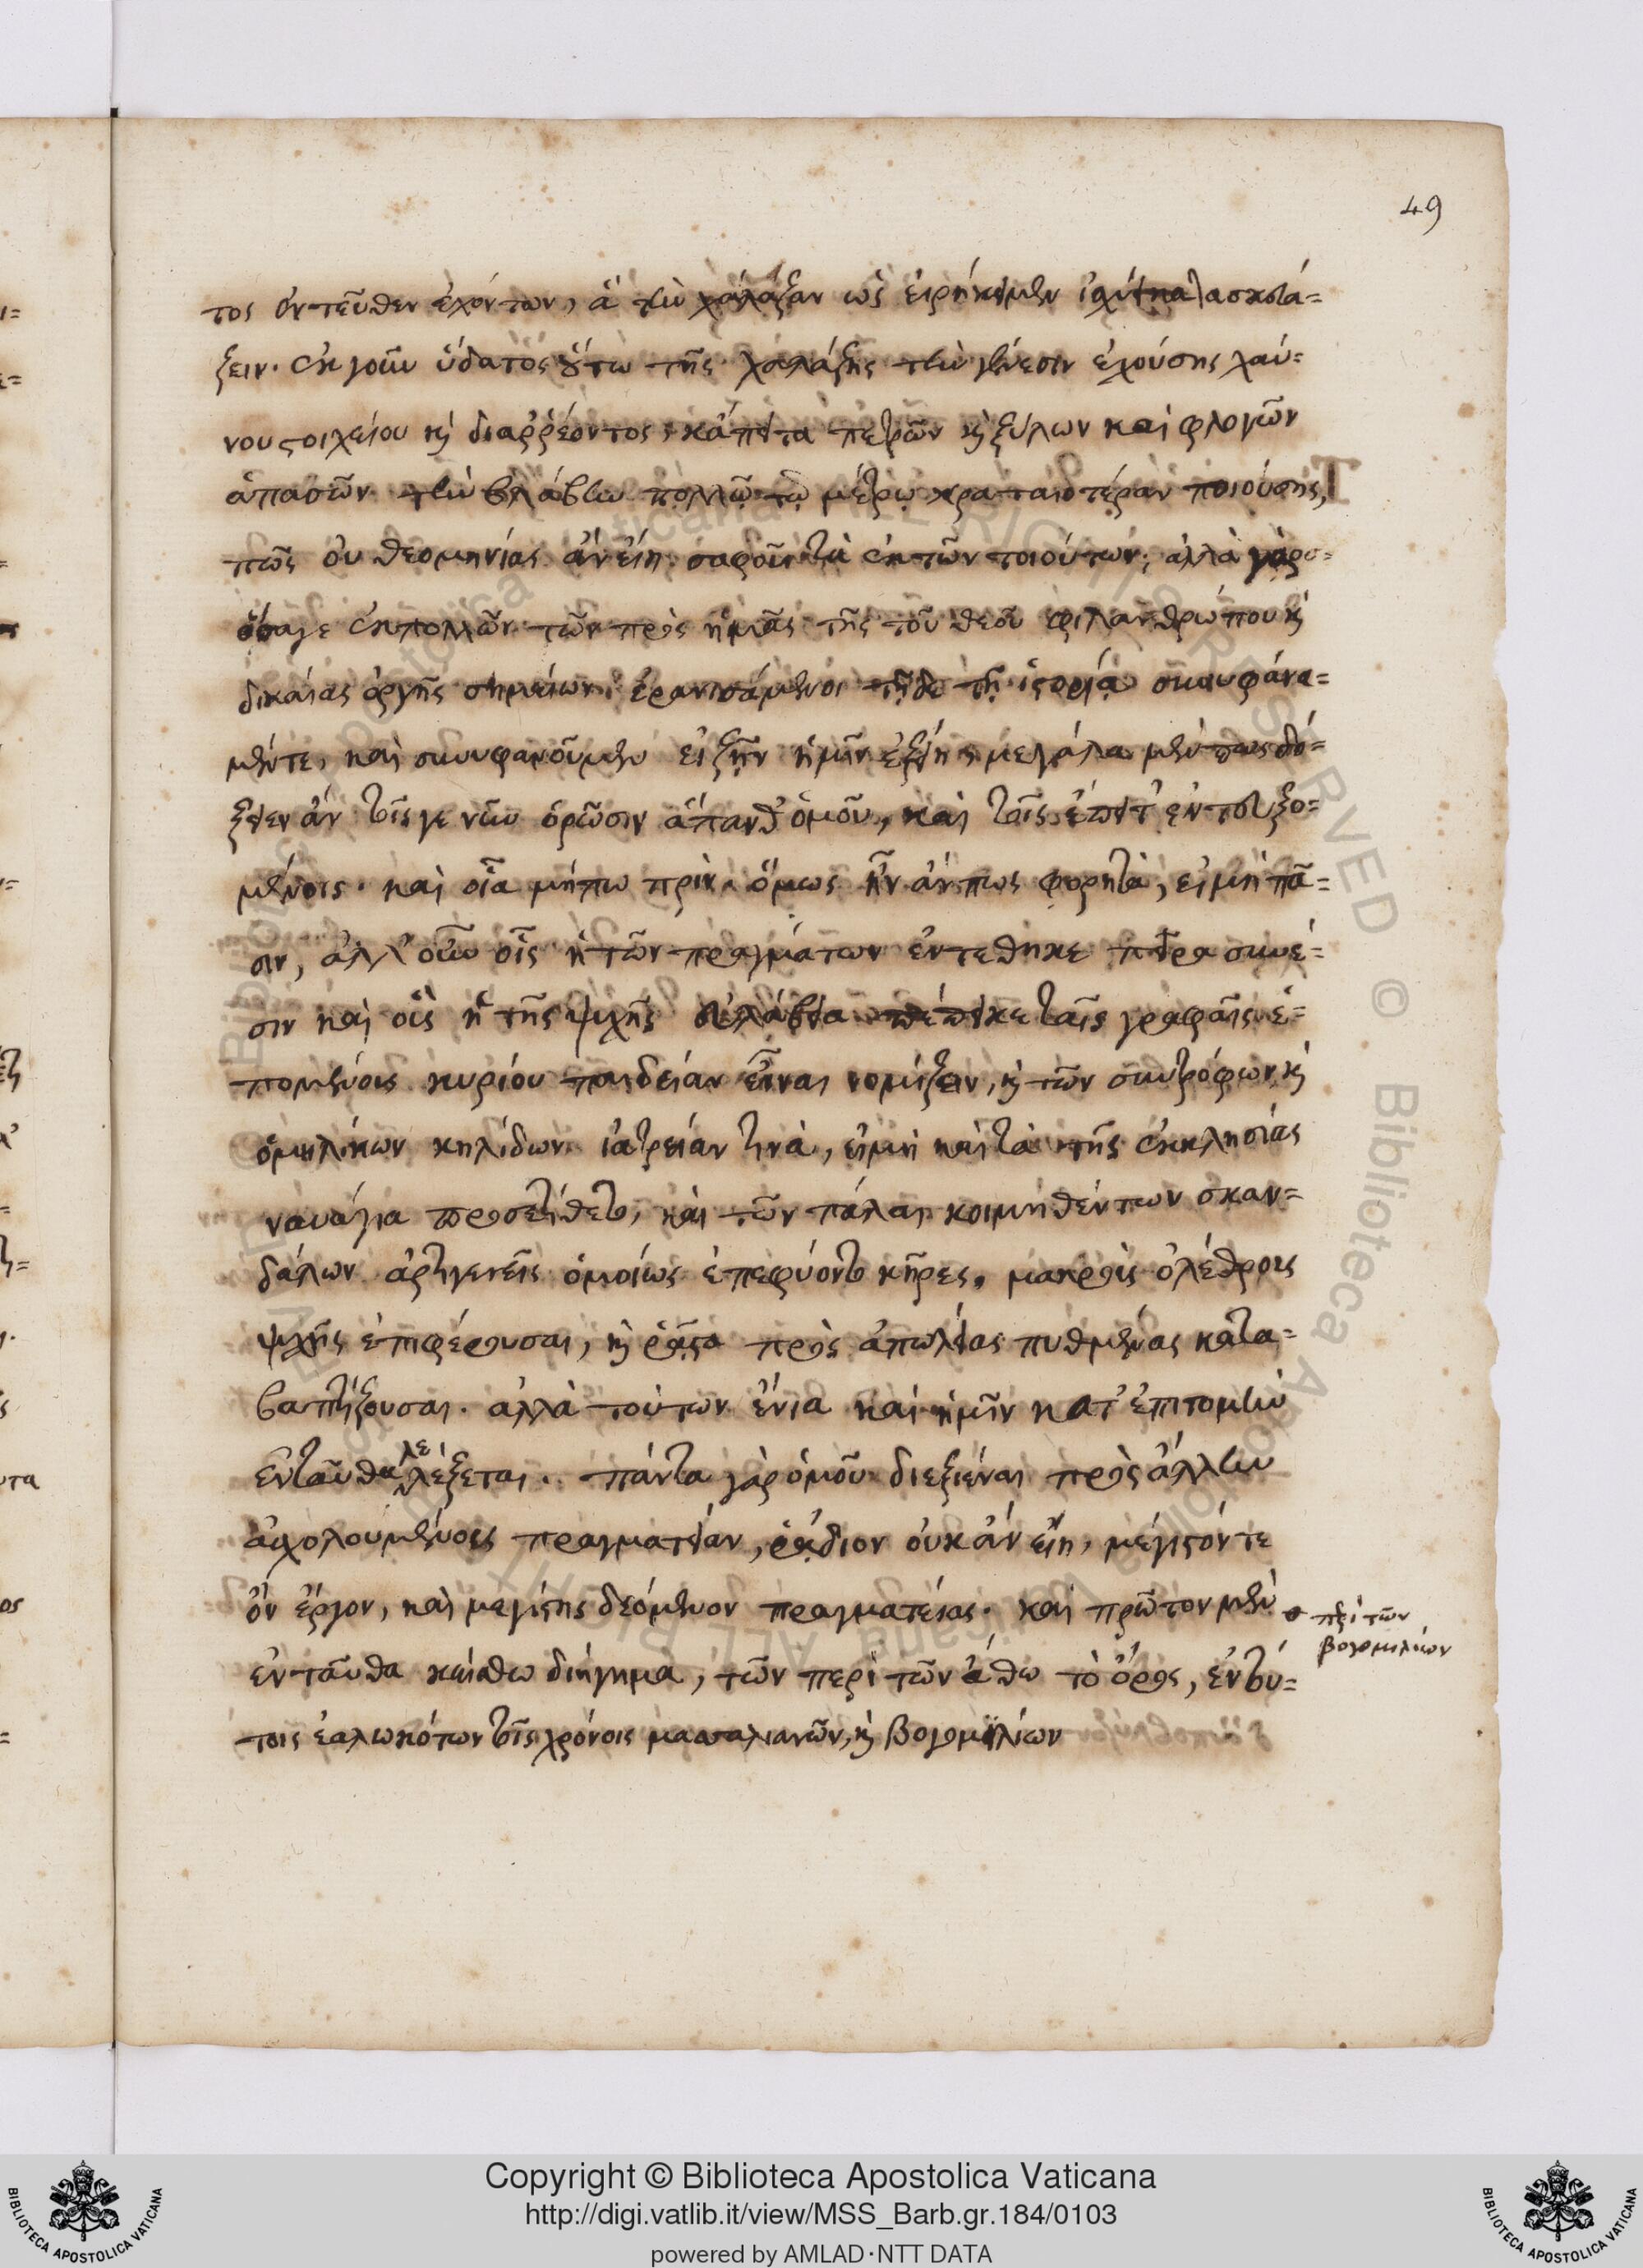 49
τος ἐντεῦθεν ἐχόντων, ἃ τὴν χάλαζαν ὡς εἰρήκειμεν
ξειν. ἐκ γοῦν ὕδατος οὕτω τῆς χαλάζης τὴν γένεσιν ἐχούσης χαύ=
νου στοιχείου καὶ διαῤῥέοντος, κἄπειτα πετρῶν καὶ ξύλων καὶ φλογῶν
ἁπασῶν τὴν βλάβην πολλῷ τῷ μέτρῳ κραταιοτέραν ποιούσης,
πῶς οὐ θεομηνίας ἂν εἴη σαφοῦς τὰ ἐκ τῶν τοιούτων; ἀλλὰ γὰρ
ὅσαγε ἐκ πολλῶν τῶν πρὸς ἡμᾶς τῆς τοῦ θεοῦ φιλανθρώπου καὶ
δικαίας ὀργῆς σημείων ἐρανισάμενοι τῇδε τῇ ἱστορίᾳ συνυφάνα=
μέν τε, καὶ συνυφανοῦμεν εἰ ζῆν ἡμῖν ἐξείη, μεγάλα μέν πως δό=
ξειεν ἂν τοῖς γε νῦν ὁρῶσιν ἅπανθ' ὁμοῦ, καὶ τοῖς ἔπειτ' ἐντευξο=
μένοις. καὶ οἷα μήπω πρὶν. ὅμως ἦν ἄν πως φορητὰ, εἰ μὴ πᾶ=
σιν, ἀλλ' οὖν οἷς ἡ τῶν πραγμάτων ἐντέθηκε πεῖρα σύνε=
σιν καὶ οἷς ἡ τῆς ψυχῆς εὐλάβεια πέπεικε ταῖς γραφαῖς ἑ=
πομένοις κυρίου παιδείαν εἶναι νομίζειν, καὶ τῶν συντρόφων καὶ
ὁμηλίκων κηλίδων ἰατρείαν τινὰ, εἰ μὴ καὶ τὰ τῆς ἐκκλησίας
ναυάγια προσετίθετο, καὶ τῶν πάλαι κοιμηθέντων σκαν=
δάλων ἀρτιγενεῖς ὁμοίως ἐπεφύοντο κῆρες, μακροῖς ὀλέθροις
ψυχῆς ἐπιφέρουσαι, καὶ ῥᾷστα πρὸς ἀπωλείας πυθμένας κατα=
βαπτίζουσαι. ἀλλὰ τούτων ἔνια καὶ ἡμῖν κατ' ἐπιτομὴν
ἐνταῦθα λελέξεται. πάντα γὰρ ὁμοῦ διεξιέναι πρὸς ἄλλην
ἀσχολουμένοις πραγματείαν, ῥᾴδιον οὐκ ἂν εἴη, μέγιστόν τε
ὂν ἔργον, καὶ μεγίστης δεόμενον πραγματείας. καὶ πρῶτον μὲν
περὶ τῶν
βογομιλίων
ἐνταῦθα κείσθω διήγημα, τῶν περὶ τὸν ἄθω τὸ ὄρος, ἐν τού=
τοις ἑαλωκότων τοῖς χρόνοις μασσαλιανῶν, καὶ βογομιλίων
Copyright © Biblioteca Apostolica Vaticana
http://digi.vatlib.it/view/MSS_Barb.gr.184/0103
powered by AMLAD·NTT DATA